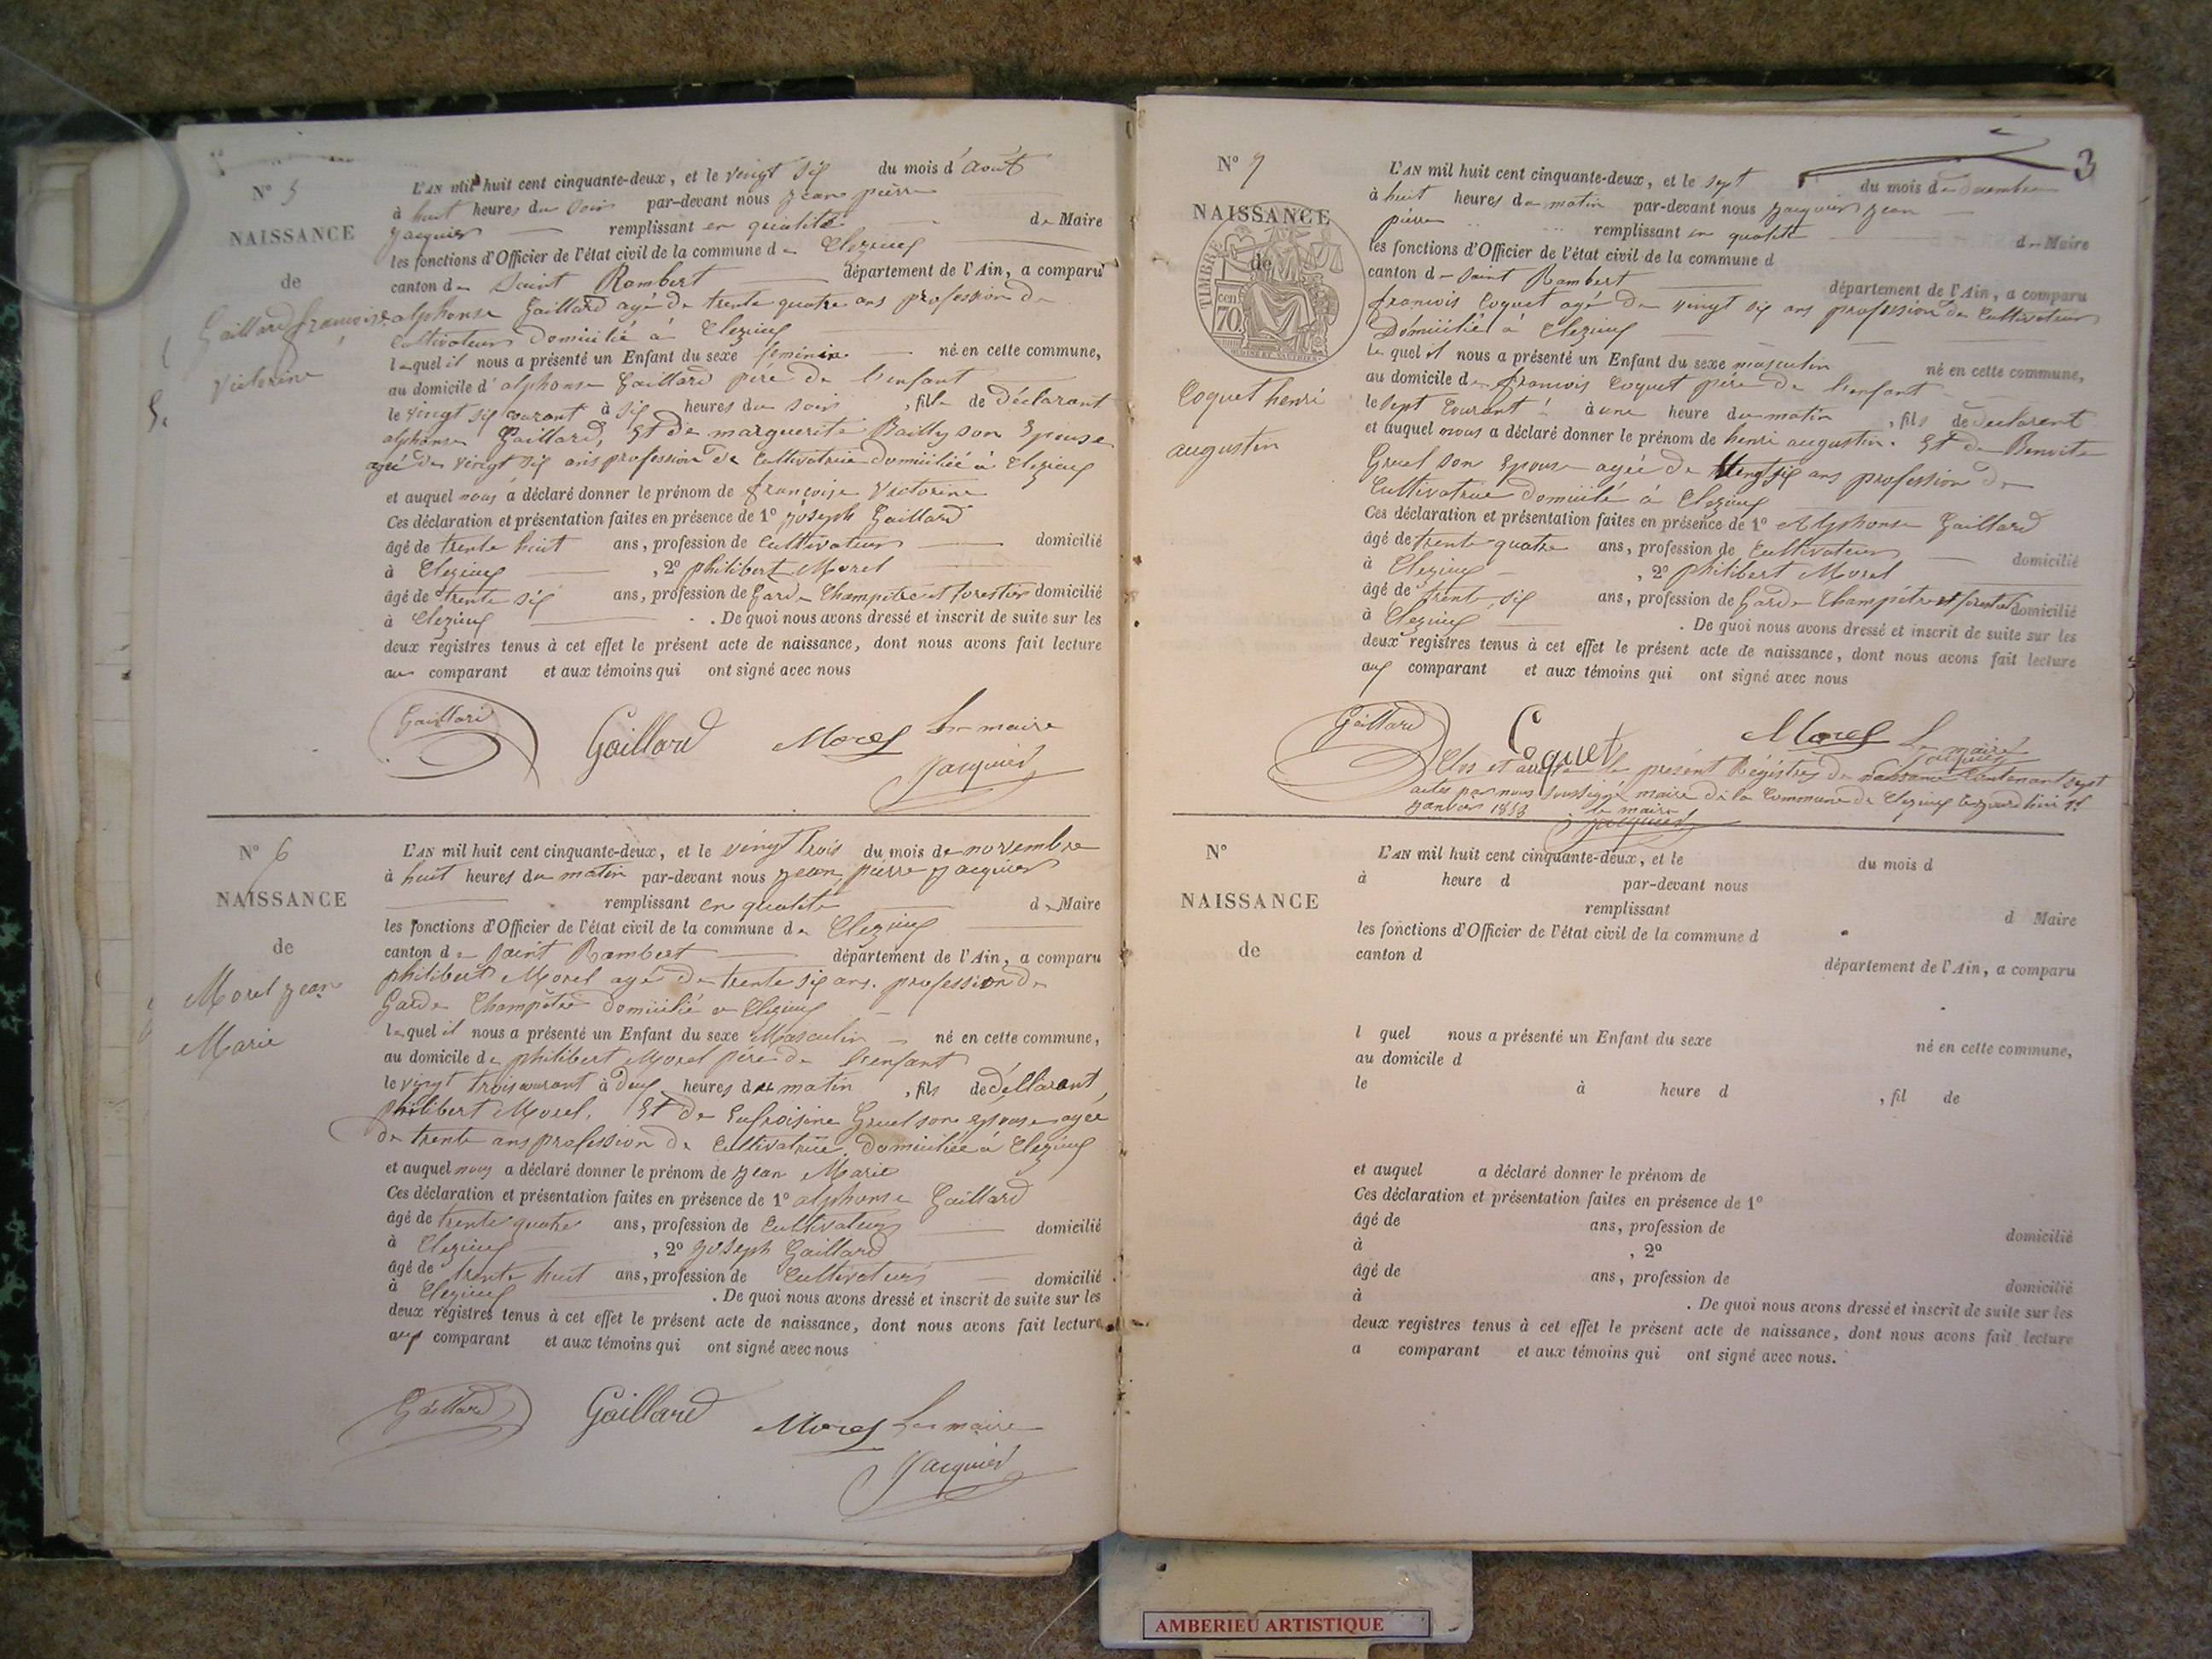 N° 5
NAISSANCE
de
Gaillard françoise
Victorine
5.
L'AN mil huit cent cinquante-deux, et le vingt six du mois d'Août
à huit heures du soir par-devant nous jean pierre
jacquier remplissant en qualité de Maire
les fonctions d'Officier de l'état civil de la commune de Clezieux
canton de Saint Rambert département de l'Ain, a comparu
alphonse Gaillard agé de trente quatre ans profession de
Cultivateur Domicilié à Clezieux
lequel il nous a présenté un Enfant du sexe feminin né en cette commune,
au domicile d'alphonse Gaillard père de l'enfant
le vingt six courant à six heures du soir, fille de déclarant
alphonse Gaillard, Et de marguerite Bailly son Epouse
agée de vingt six ans profession de Cultivatrice domiciliée à Clezieux
et auquel nous a déclaré donner le prénom de françoise Victorine
Ces déclaration et présentation faites en présence de 1° joseph Gaillard
âgé de trente huit ans, profession de Cultivateur domicilié
à Clezieux, 2° philibert Morel
âgé de trente six ans, profession de Garde Champêtre et forestier domicilié
à Clezieux. De quoi nous avons dressé et inscrit de suite sur les
deux registres tenus à cet effet le présent acte de naissance, dont nous avons fait lecture
au comparant et aux témoins qui ont signé avec nous
Gaillard Gaillard Morel Le maire
Jacquier
N° 6
NAISSANCE
de
Morel jean
Marie
L'AN mil huit cent cinquante-deux, et le vingt trois du mois de novembre
à huit heures du matin par-devant nous jean pierre jacquier
remplissant en qualité de Maire
les fonctions d'Officier de l'état civil de la commune de Clezieux
canton de Saint Rambert département de l'Ain, a comparu
philibert Morel agé de trente six ans. profession de
Garde Champêtre domicilié a Clezieux
lequel il nous a présenté un Enfant du sexe Masculin né en cette commune,
au domicile de philibert Morel père de l'enfant
le vingt trois courant à deux heures du matin, fils de déclarant
philibert Morel. Et de Eufroisine Gruel son epouse agée
de trente ans profession de Cultivatrice. domiciliée à Clezieux
et auquel nous a déclaré donner le prénom de jean Marie
Ces déclaration et présentation faites en présence de 1° alphonse Gaillard
âgé de trente quatre ans, profession de Cultivateur domicilié
à Clezieux, 2° joseph Gaillard
âgé de trente huit ans, profession de Cultivateur domicilié
à Clezieux. De quoi nous avons dressé et inscrit de suite sur les
deux registres tenus à cet effet le présent acte de naissance, dont nous avons fait lecture
aux comparant et aux témoins qui ont signé avec nous
Gaillard Gaillard Morel Le maire
Jacquier
3
N° 7
NAISSANCE
de
TIMBRE
70 cen
Coquet henri
augustin
L'AN mil huit cent cinquante-deux, et le sept du mois de decembre
à huit heures du matin par-devant nous jacquier jean
pierre remplissant en qualité de Maire
les fonctions d'Officier de l'état civil de la commune d
canton de Saint Rambert département de l'Ain, a comparu
francois Coquet agé de vingt six ans profession de Cultivateur
Domicilié à Clezieux
Le quel il nous a présenté un Enfant du sexe masculin né en cette commune,
au domicile de francois Coquet père de l'enfant
le sept Courant à une heure du matin, fils de declarent
et auquel nous a déclaré donner le prénom de henri augustin. Et de Benoite
Gruel son Epouse agée de vingt six ans profession de
Cultivatrice domicilié à Clezieux
Ces déclaration et présentation faites en présence de 1° Alphonse Gaillard
âgé de trente quatre ans, profession de Cultivateur domicilié
à Clezieux, 2° philibert Morel
âgé de trente six ans, profession de Garde Champêtre et forestier domicilié
à Clezieux. De quoi nous avons dressé et inscrit de suite sur les
deux registres tenus à cet effet le présent acte de naissance, dont nous avons fait lecture
aux comparant et aux témoins qui ont signé avec nous
Gaillard Coquet Morel Le maire
Jacquier
Clos et arrêté le présent Régistre de naissance Contenant sept
actes par nous soussigné maire de la Commune de Clezieux aujourd'hui 1er
janvier 1853 le maire
Jacquier
N°
NAISSANCE
de
L'AN mil huit cent cinquante-deux, et le du mois d
à heure d par-devant nous
remplissant d Maire
les fonctions d'Officier de l'état civil de la commune d
canton d département de l'Ain, a comparu
l quel nous a présenté un Enfant du sexe né en cette commune,
au domicile d
le à heure d , fil de
et auquel a déclaré donner le prénom de
Ces déclaration et présentation faites en présence de 1°
âgé de ans, profession de domicilié
à , 2°
âgé de ans, profession de domicilié
à . De quoi nous avons dressé et inscrit de suite sur les
deux registres tenus à cet effet le présent acte de naissance, dont nous avons fait lecture
a comparant et aux témoins qui ont signé avec nous.
AMBERIEU ARTISTIQUE